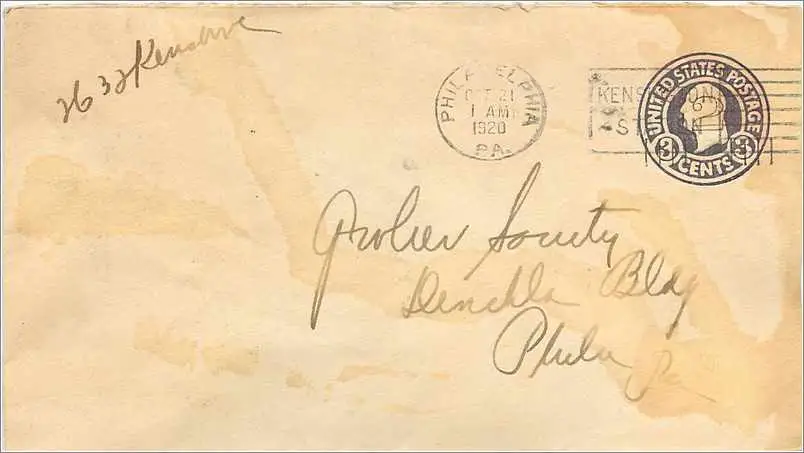 2632
PHILADELPHIA
OCT 21
1 AM
1920
PA.
KENSINGTON
STATION
UNITED STATES POSTAGE
3 CENTS 3
Grolier Society
Denckla Bldg
Phila Pa